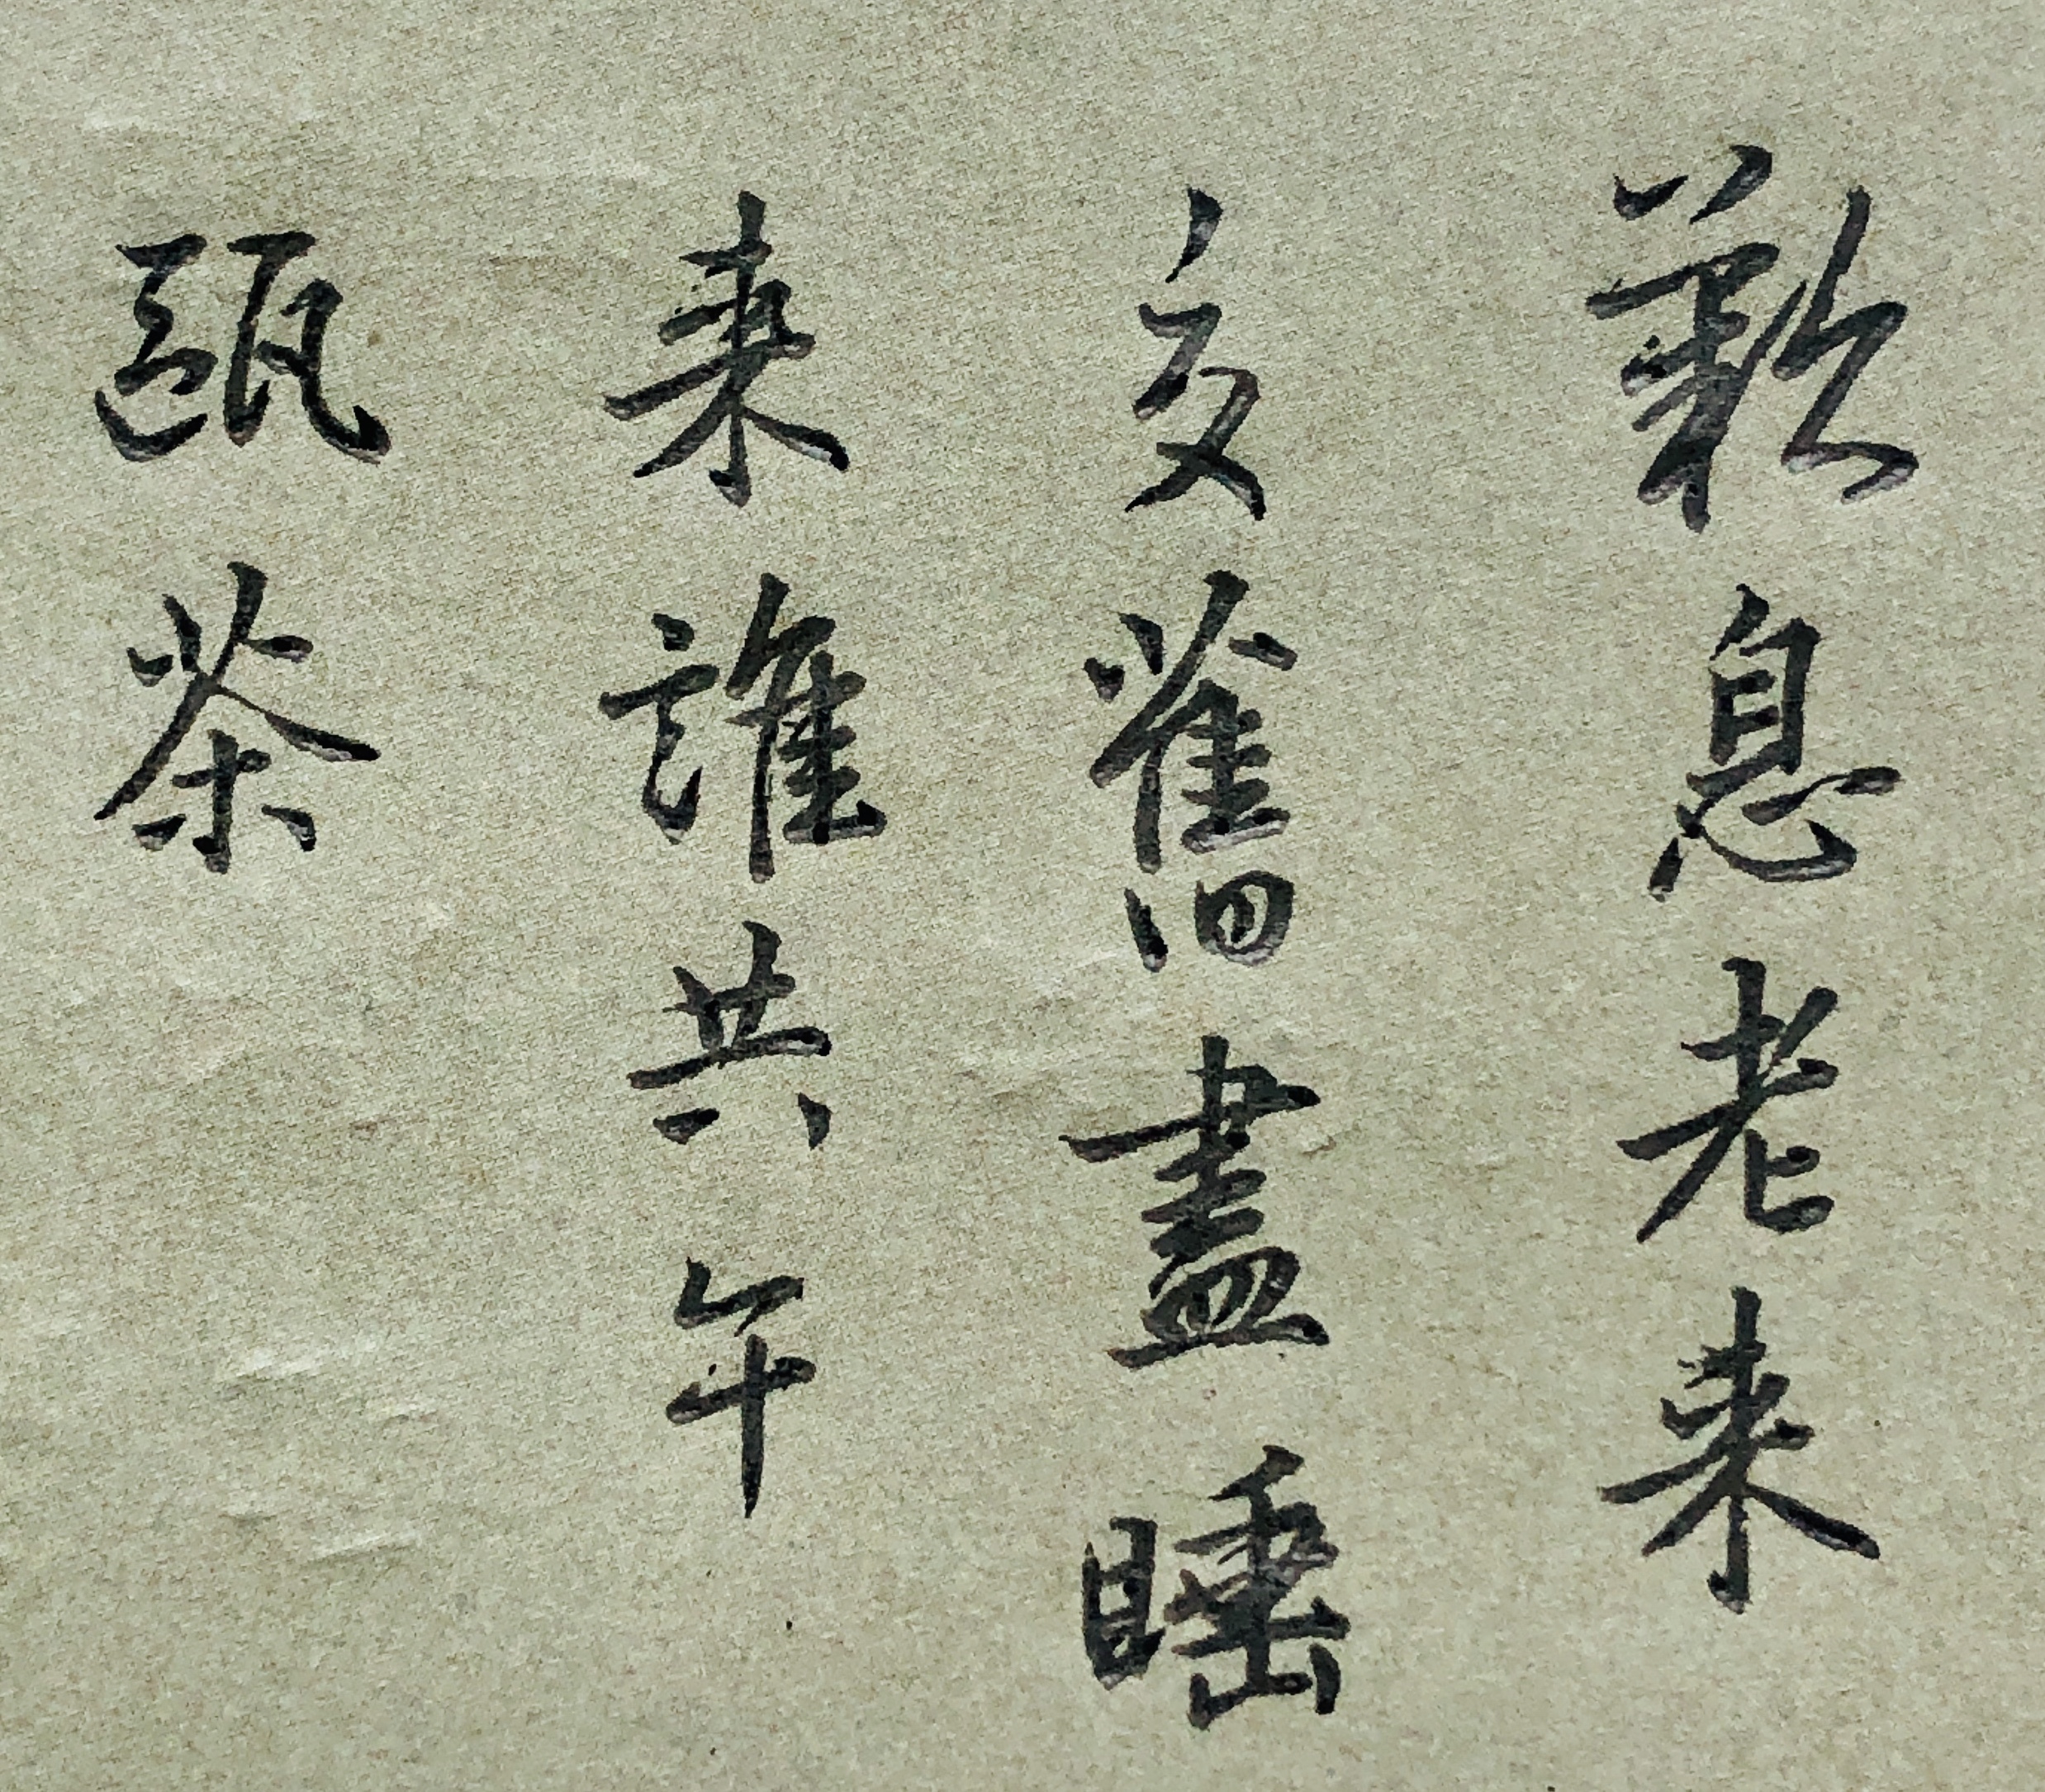 歎息老来
交舊盡睡
来誰共午
甌茶